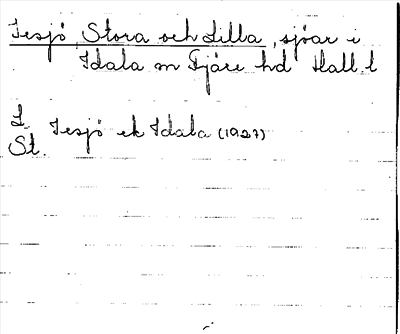 Tesjö, Stora och Lilla, sjöar i
Idala sn Fjäre hd Hall. l
L.
St. Tesjö ek Idala (1927)